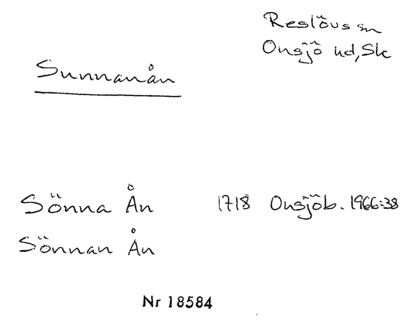 Reslövs sn
Onsjö hd, Sk
Sunnanån
Sönna Ån 1718 Onsjöb. 1966:38
Sönnan Ån
Nr 18584